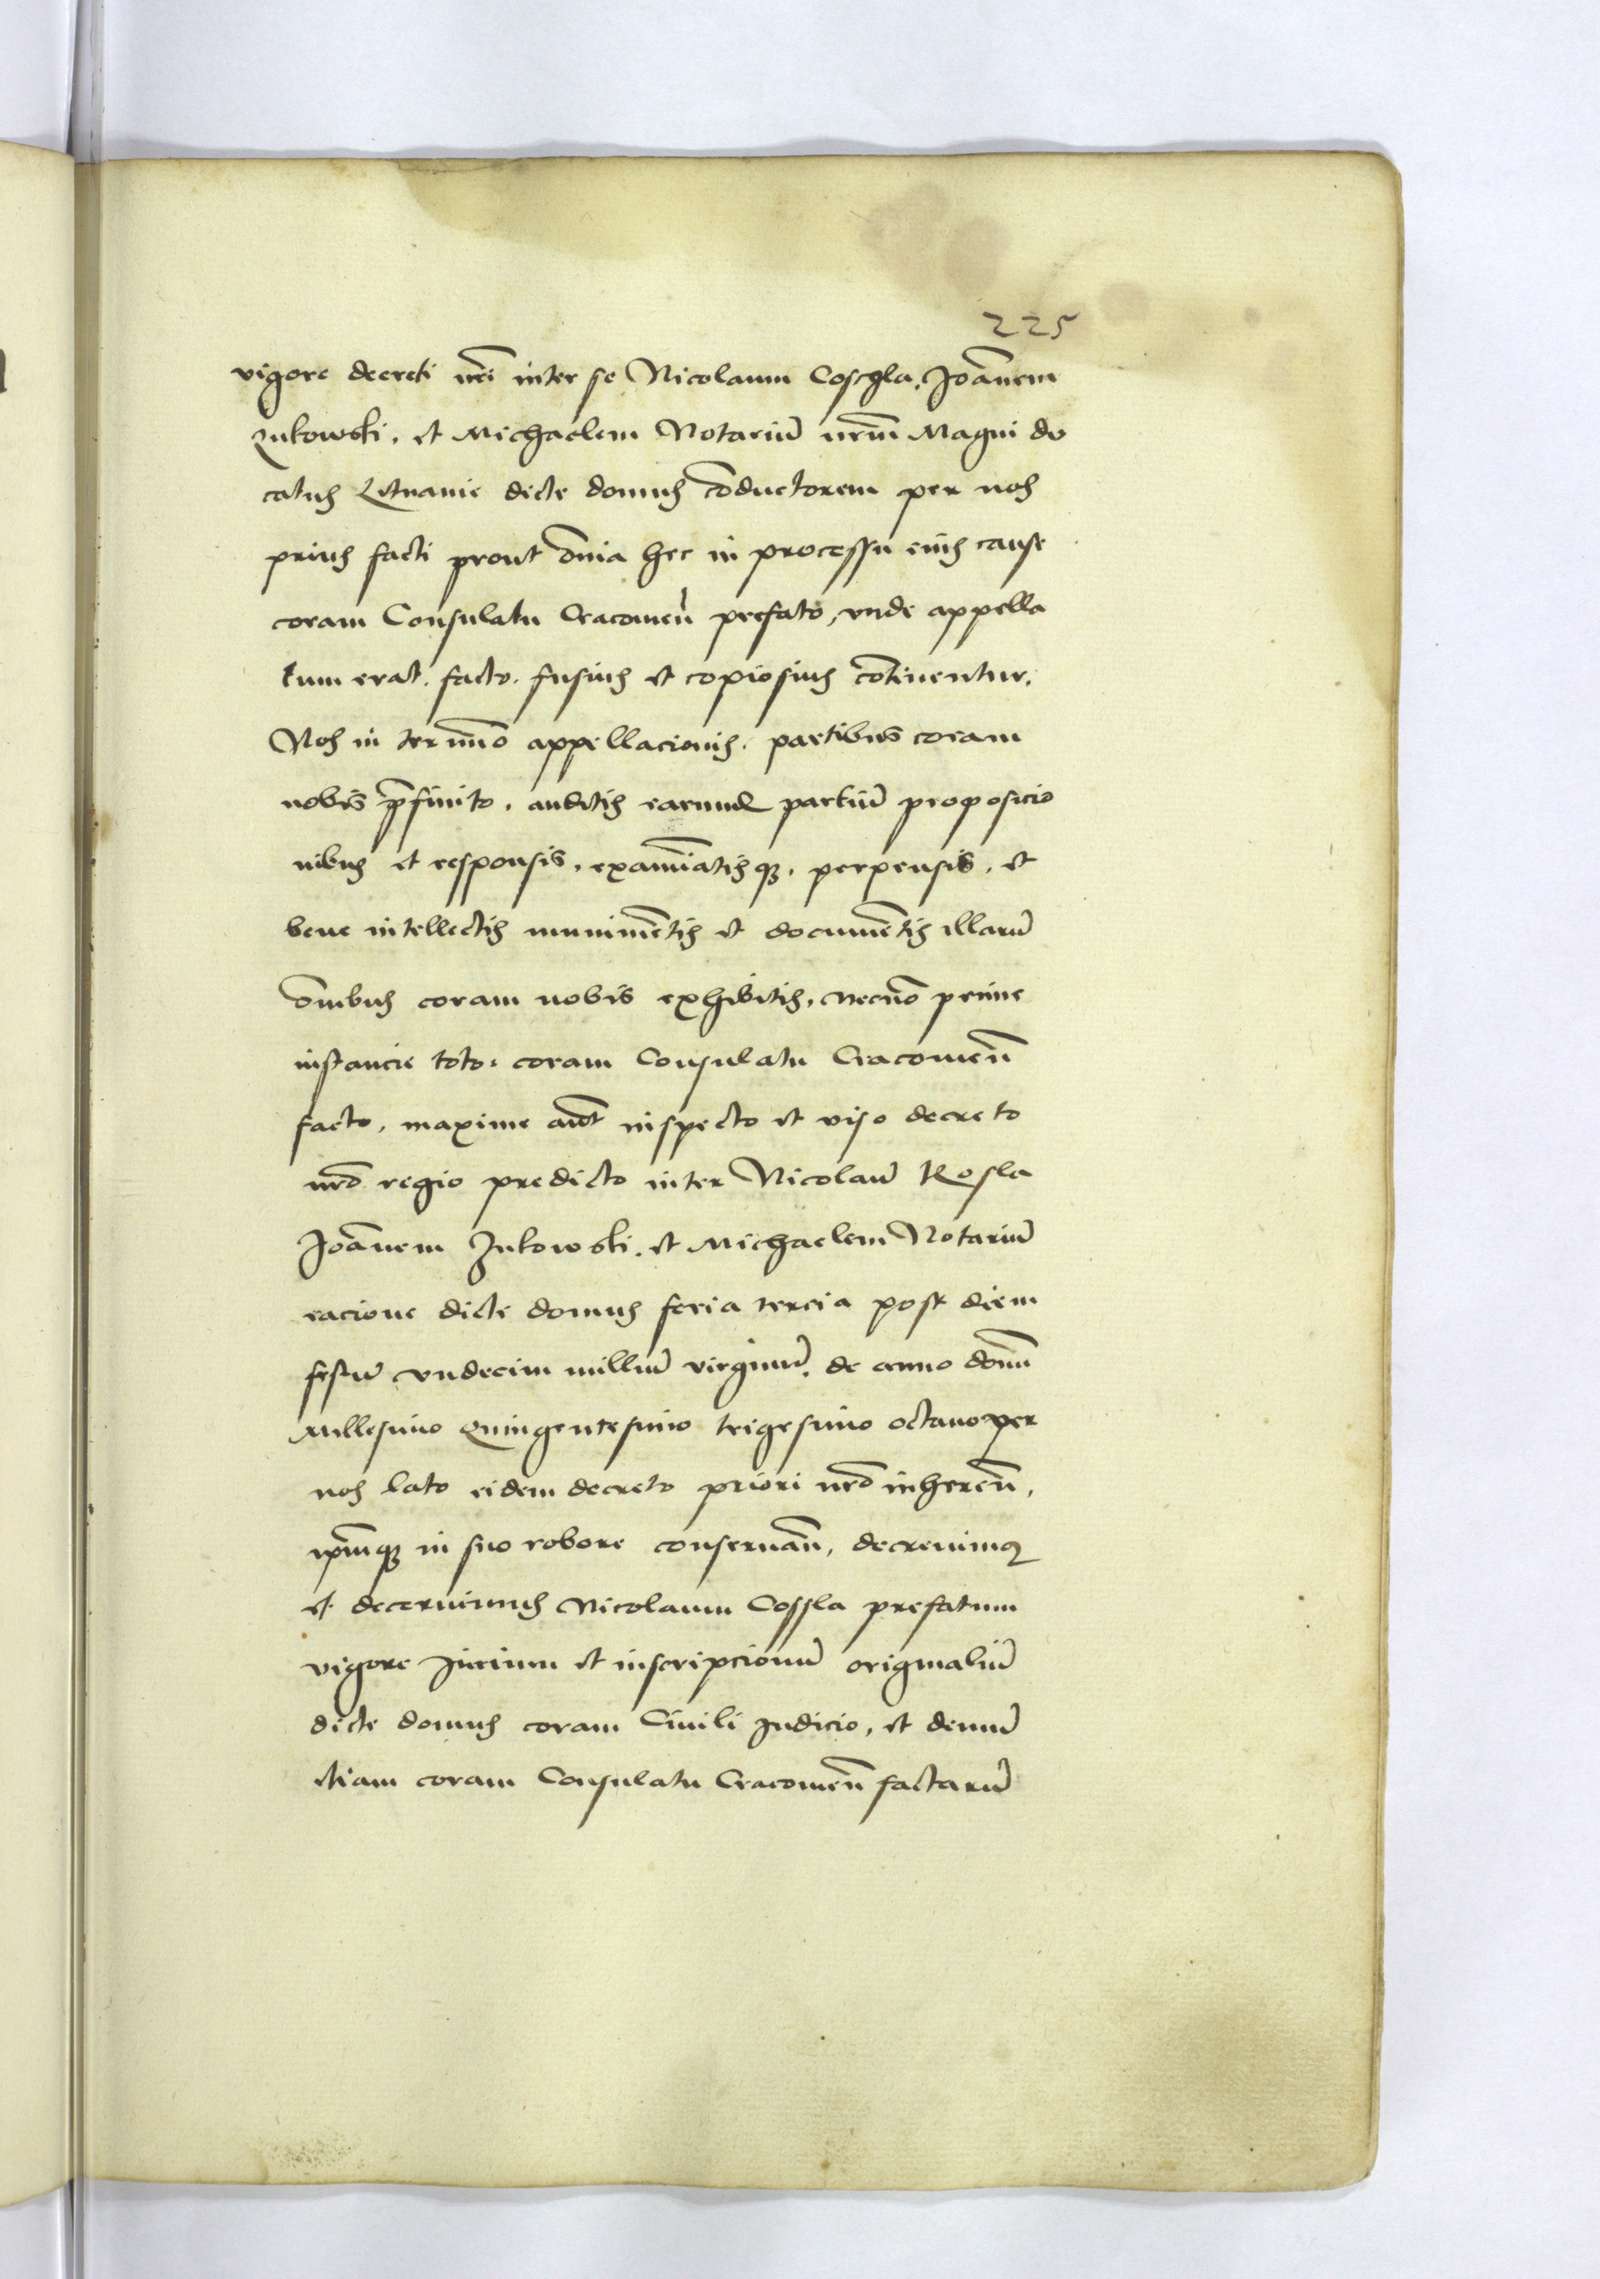 225
vigore decreti nrĩ inter se Nicolaum Coschla, Joãnem
Zukowski, et Michaelem Notariũ nrm̃ Magni du
catus Lituanie dicte domus cõductorem per nos
prius facti prout õnia hec in processu eius cause
coram Consulatu Cracouieñ prefato, vnde appella
tum erat, facto, fusius et copiosius cõtinentur,
Nos in termĩo appellacionis, partibus coram
nobis p̃finito, auditis earumd partiũ proposicio
nibus et responsis, examĩatisq, perpensis, et
bene intellectis munimẽtis et documẽtis illarũ
õmibus coram nobis exhibitis, necnõ prime
instancie toto, coram Consulatu Cracouieñ
facto, maxime aũt inspecto et viso decreto
nrõ regio predicto inter Nicolaũ Kosla
Joãnem Zukowski, et Michaelem Notariũ
racione dicte domus feria tercia post diem
festũ vndecim milliũ virginũ, de anno domĩ
Millesimo Quingentesimo trigesimo octauo per
nos lato eidem decreto priori nrõ inhereñ,
ipm̃q in suo robore conseruañ, decreuimꝯ
et decernimus Nicolaum Cossla prefatum
vigore Jurium et inscripcionũ originaliũ
dicte domus coram Ciuili Judicio, et demũ
etiam coram Consulatu Cracouieñ factarũ